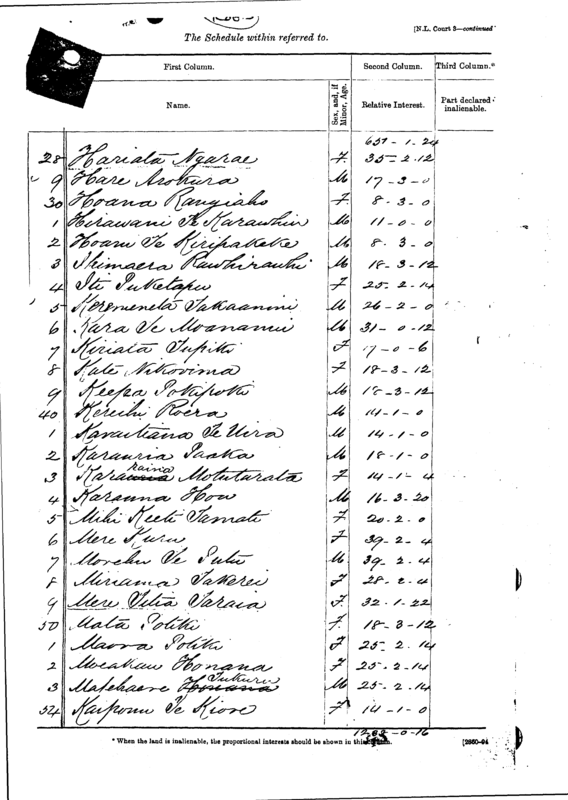 The Schedule within referred to.
[N.L. Court 3—continued
First Column. Second Column. Third Column.*
Name. Sex, and, if Minor, Age. Relative Interest. Part declared inalienable.
651 - 1 - 24
28 Hariata Ngarae F 35 - 2 - 12
9 Hare Arohura M 17 - 3 - 0
30 Hoana Rangiaho F 8 - 3 - 0
1 Hirawani Te Karawhiu M 11 - 0 - 0
2 Hoani Te Kiripakeke M 8 - 3 - 0
3 Ihimaera Rawhirawhi M 18 - 3 - 12
4 Iti Puketapu F 25 - 2 - 14
5 Keremeneta Takaanini M 26 - 2 - 0
6 Kara Te Moananui M 31 - 0 - 12
7 Kiriata Tupiki F 17 - 0 - 6
8 Kate Nikorima F 18 - 3 - 12
9 Keepa Pokipoki M 18 - 3 - 12
40 Kereihi Roera M 14 - 1 - 0
1 Te Uira M 14 - 1 - 0
2 Karauria Paaka M 18 - 1 - 0
raina
3 Motuturata F 14 - 1 - 4
4 Hou M 16 - 3 - 20
5 Mihi Keeti Tamati F 20 - 2 - 0
6 Mere Kuru F 39 - 2 - 4
7 Morehu Te Putu M 39 - 2 - 4
8 Miriama Takerei F 28 - 2 - 4
9 Mere Titia Taraia F 32 - 1 - 22
50 Mata Potiki F 18 - 3 - 12
1 Maora Potiki F 25 - 2 - 14
2 Honana F 25 - 2 - 14
Tukuru
3 Matehaere Honana M 25 - 2 - 14
54 Kaiponu Te Kiore F 14 - 1 - 0
- 0 - 16
* When the land is inalienable, the proportional interests should be shown in this column.
[2860-94